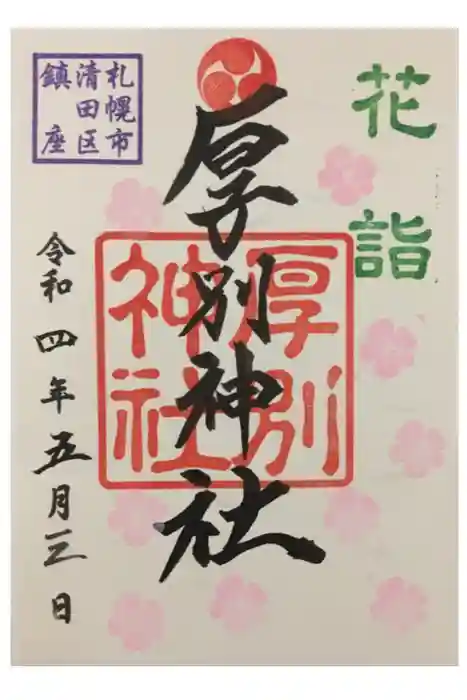 花詣
厚別神社
厚別
神社
札幌市
清田区
鎮座
令和四年五月三日